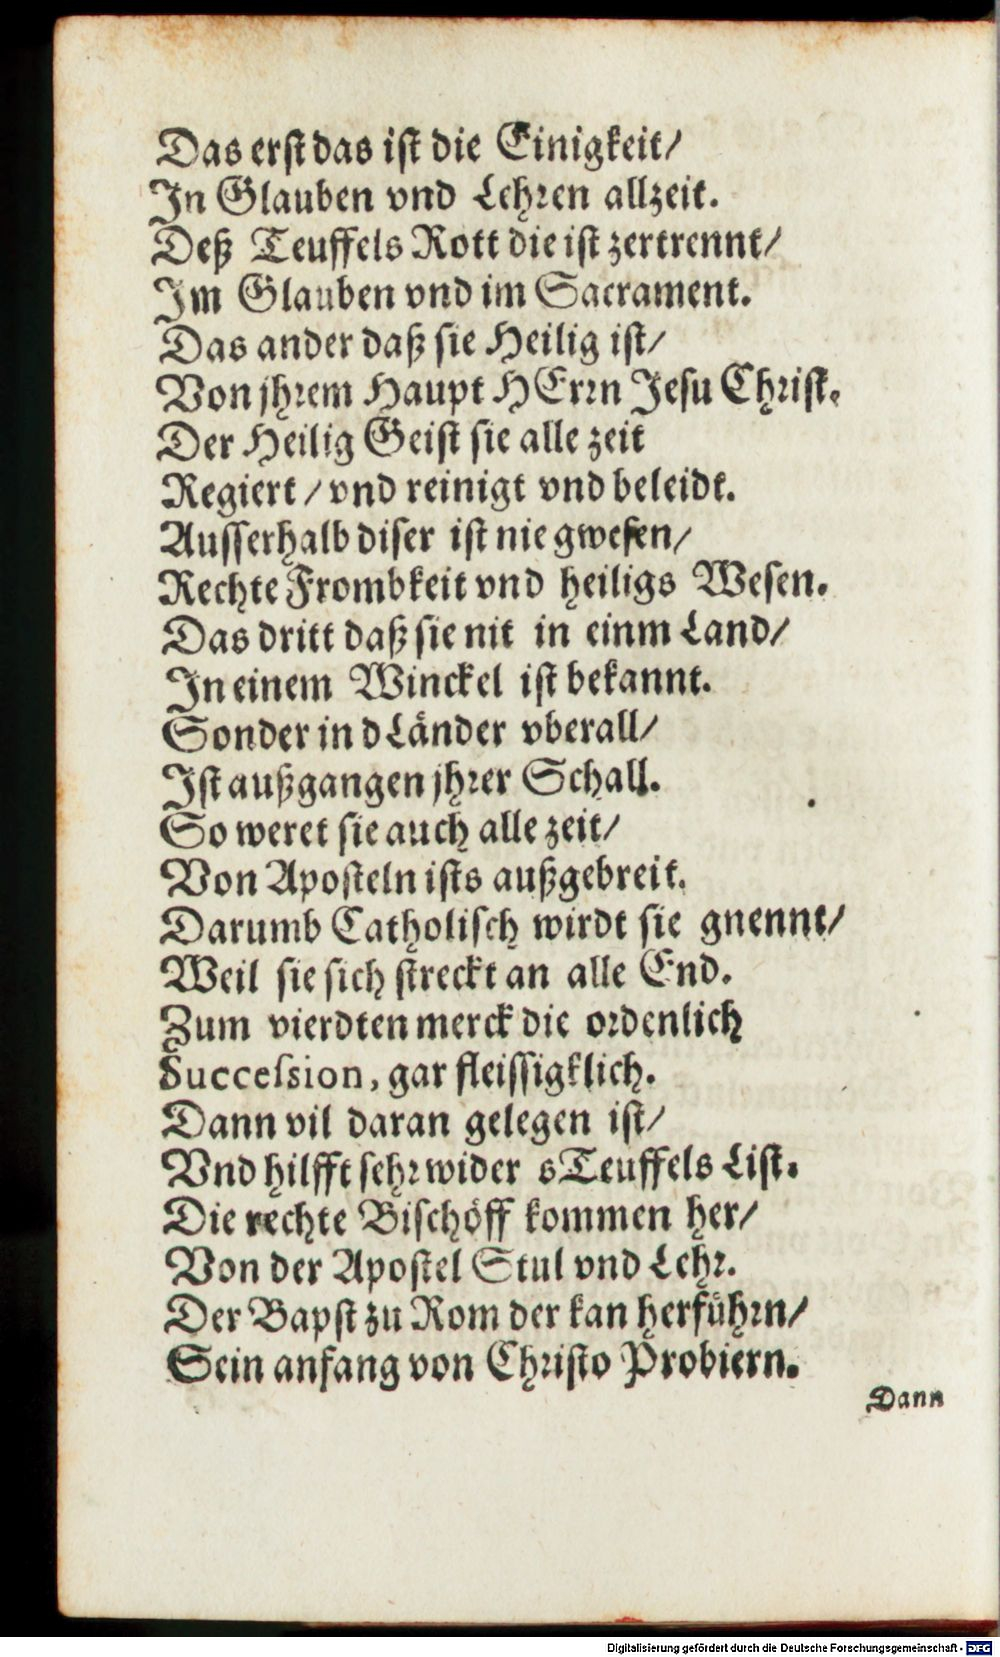 Das erst das ist die Einigkeit/
In Glauben vnd Lehren allzeit.
Deß Teuffels Rott die ist zertrennt/
Im Glauben vnd im Sacrament.
Das ander daß sie Heilig ist/
Von jhrem Haupt HErrn Jesu Christ.
Der Heilig Geist sie alle zeit
Regiert / vnd reinigt vnd beleidt.
Ausserhalb diser ist nie gwesen/
Rechte Frombkeit vnd heiligs Wesen.
Das dritt daß sie nit in einm Land/
In einem Winckel ist bekannt.
Sonder in d Länder vberall/
Ist außgangen jhrer Schall.
So weret sie auch alle zeit/
Von Aposteln ists außgebreit.
Darumb Catholisch wirdt sie gnennt/
Weil sie sich streckt an alle End.
Zum vierdten merck die ordenlich
Succession, gar fleissigklich.
Dann vil daran gelegen ist/
Vnd hilfft sehr wider s Teuffels List.
Die rechte Bischöff kommen her/
Von der Apostel Stul vnd Lehr.
Der Bapst zu Rom der kan herführn/
Sein anfang von Christo Probiern.
Dann
Digitalisierung gefördert durch die Deutsche Forschungsgemeinschaft - DFG